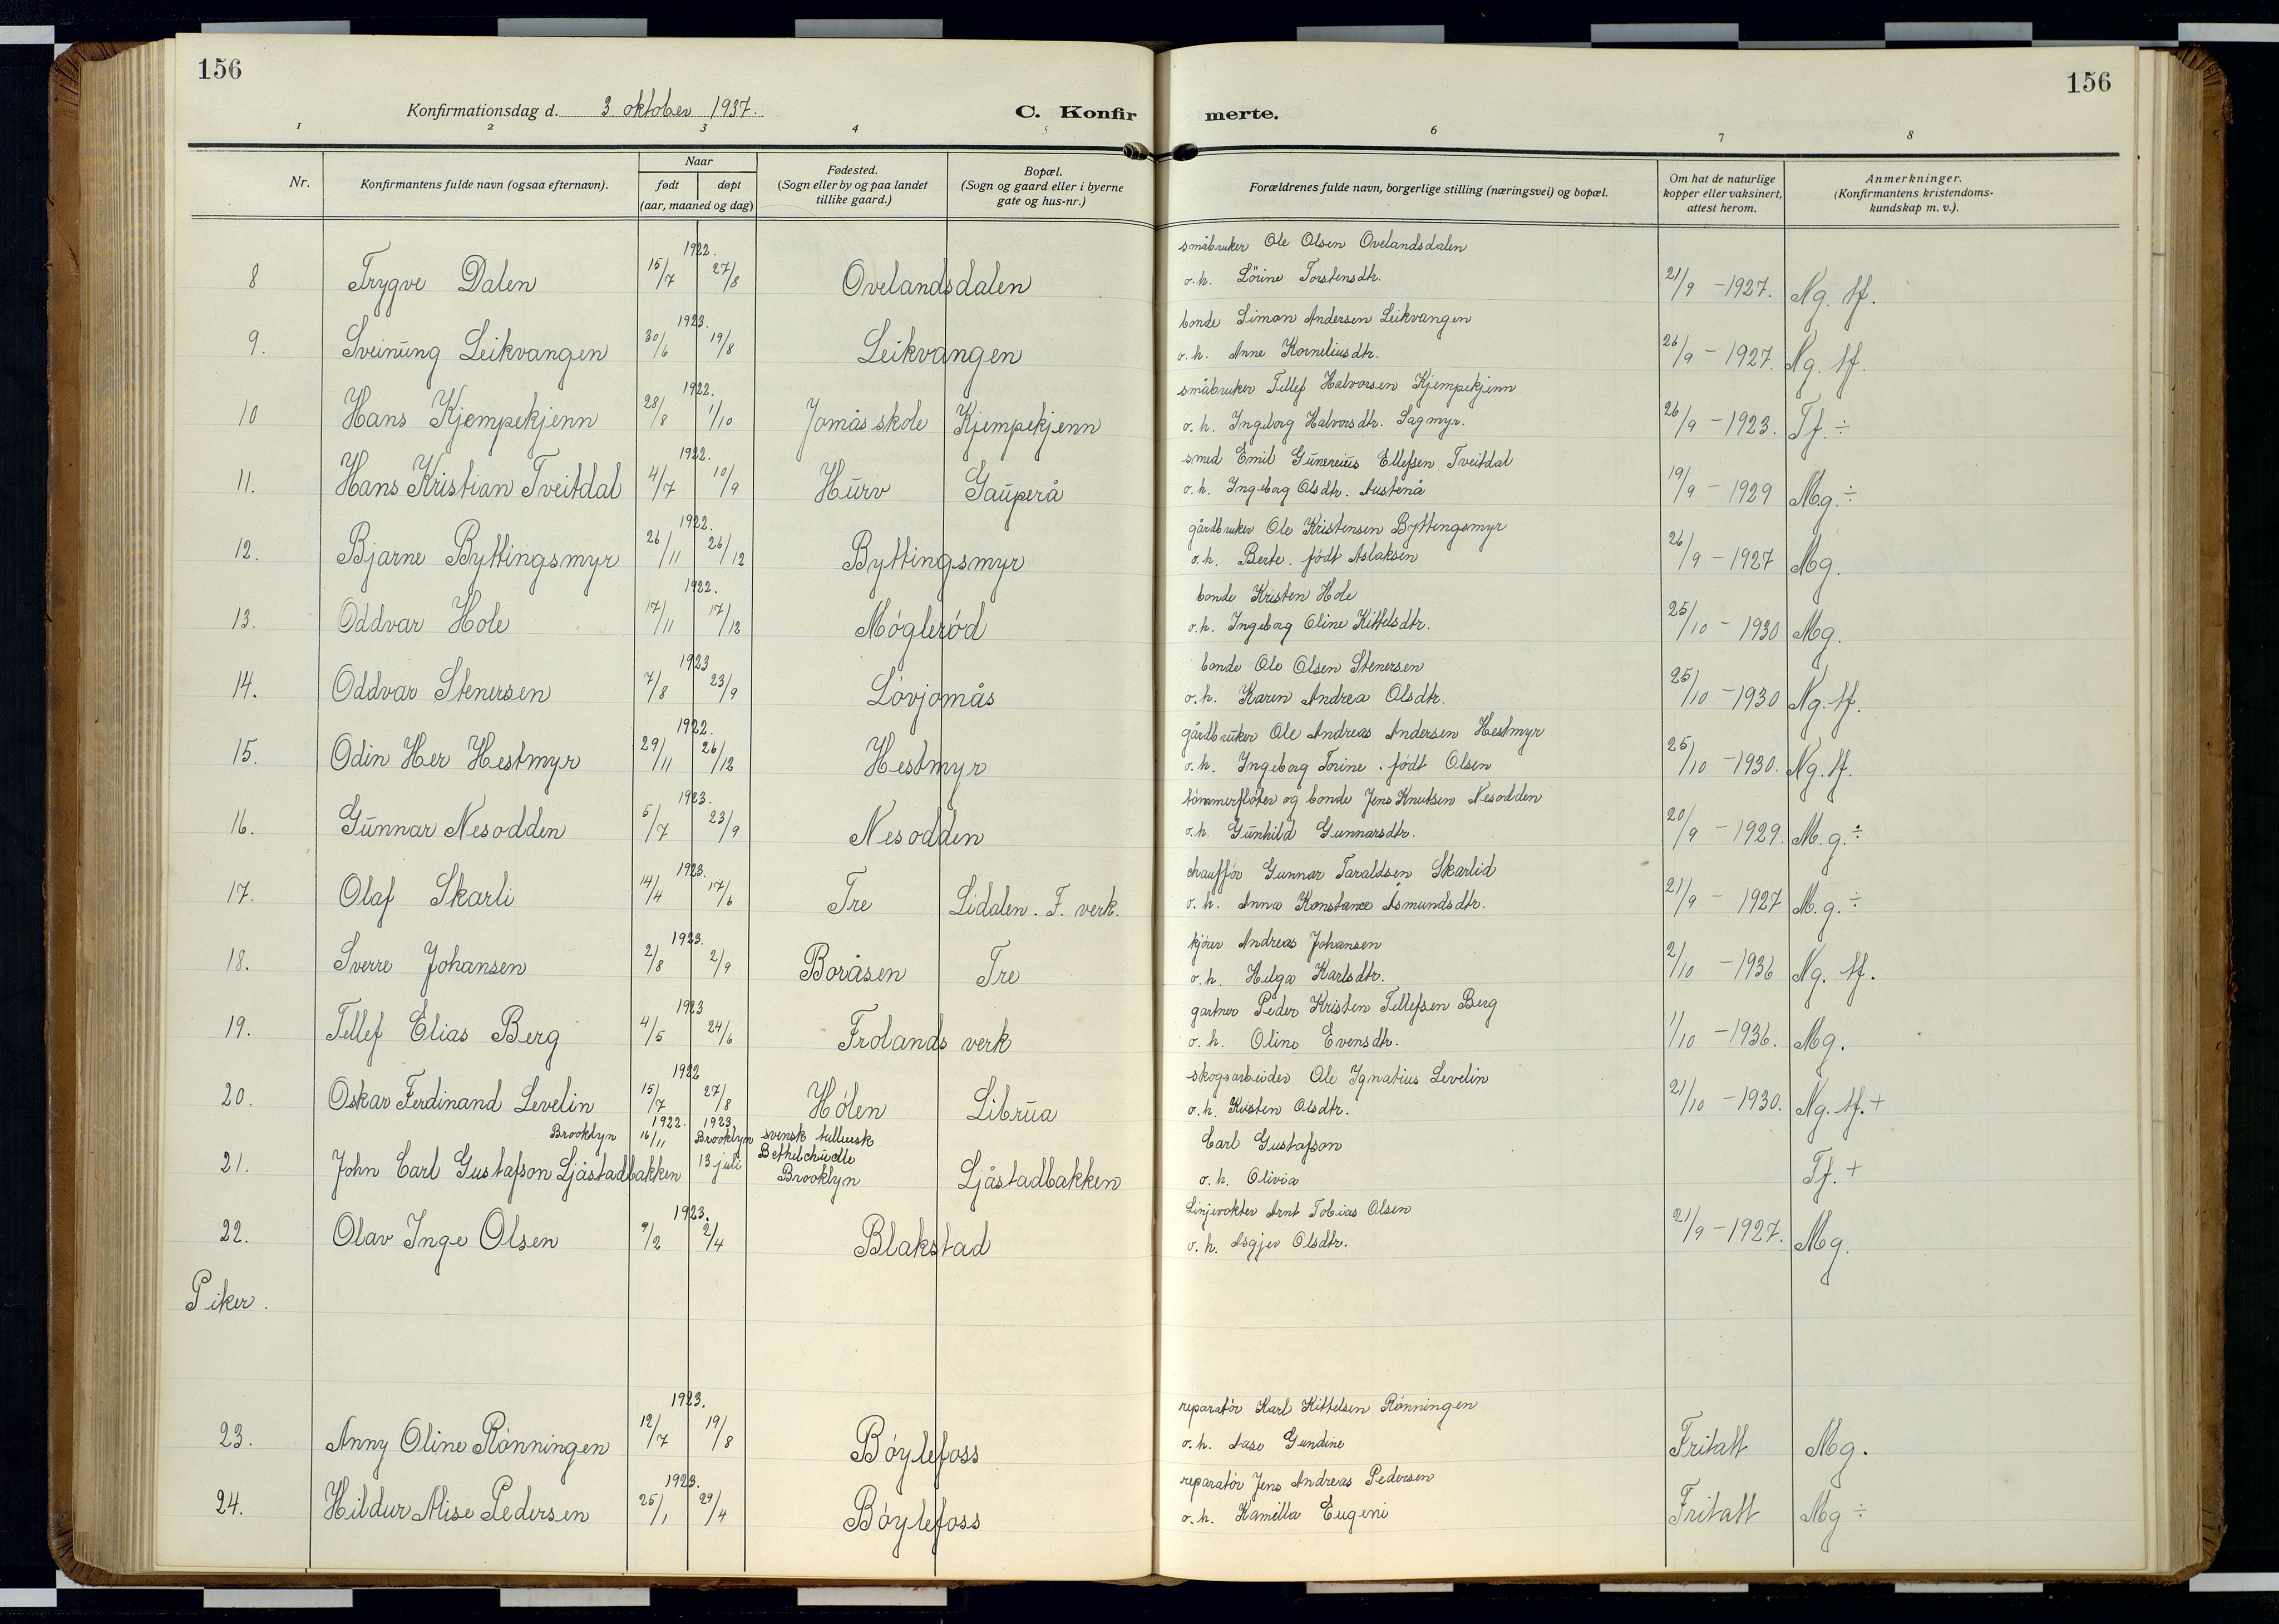 156
156
Konfirmationsdag d. 3 oktober 1937.
C. Konfirmerte.
1 2 3 4 5 6 7 8
Nr.
Konfirmantens fulde navn (ogsaa efternavn).
Naar
født døpt
(aar, maaned og dag)
Fødested.
(Sogn eller by og paa landet
tillike gaard.)
Bopæl.
(Sogn og gaard eller i byerne
gate og hus-nr.)
Forældrenes fulde navn, borgerlige stilling (næringsvei) og bopæl.
Om hat de naturlige
kopper eller vaksinert,
attest herom.
Anmerkninger.
(Konfirmantens kristendoms-
kundskap m. v.).
1922. småbruker Ole Olsen Ovelandsdalen
8 Trygve Dalen 15/7 27/8 Ovelandsdalen o. h. Lörine Torstensdtr. 21/9 - 1927. Ng. tf.
1923. bonde Simon Andersen Leikvangen
9. Sveinung Leikvangen 30/6 19/8 Leikvangen o. h. Anne Korneliusdtr. 26/9 - 1927. Ng. tf.
1922. småbruker Tellef Halvorsen Kjempekjenn
10 Hans Kjempekjenn 28/8 1/10 Jomås skole Kjempekjenn o. h. Ingeborg Halvorsdtr. Sagmyr. 26/9 - 1923. Tf. ÷
1922. smed Emil Gunereius Ellefsen Tveitdal
11. Hans Kristian Tveitdal 4/7 10/9 Hurv Gauperå o. h. Ingeborg Olsdtr. Austenå 19/9 - 1929 Mg. ÷
1922. gårdbruker Ole Kristensen Byttingsmyr
12. Bjarne Byttingsmyr 26/11 26/12 Byttingsmyr o. h. Berte. født Aslaksen 26/9 - 1927 Mg.
1922. bonde Kristen Hole
13. Oddvar Hole 17/11 17/12 Møglerød o. h. Ingeborg Oline Kittelsdtr. 25/10 - 1930 Mg.
1923 bonde Ole Olsen Stenersen
14. Oddvar Stenersen 7/8 23/9 Løvjomås o. h. Karen Andrea Olsdtr. 25/10 - 1930 Ng. tf.
1922. gårdbruker Ole Andreas Andersen Hestmyr
15. Odin Her Hestmyr 29/11 26/12 Hestmyr o. h. Ingeborg Torine. født Olsen 25/10 - 1930. Ng. tf.
1923. tømmerfløter og bonde Jens Knutsen Nesodden
16. Gunnar Nesodden 5/7 23/9 Nesodden o. h. Gunhild Gunnarsdtr. 20/9 - 1929. M. g. ÷
1923. chauffør Gunnar Taraldsen Skarlid
17. Olaf Skarli 14/4 17/6 Tre Lidalen. F. verk. o. h. Anna Konstance Åsmundsdtr. 21/9 - 1927 M. g. ÷
1923. kjører Andreas Johansen
18. Sverre Johansen 2/8 2/9 Boråsen Tre o. h. Helga Karlsdtr. 2/10 - 1936 Ng. tf.
1923 gartner Peder Kristen Tellefsen Berg
19. Tellef Elias Berg 4/5 24/6 Frolands verk o. h. Oline Evensdtr. 1/10 - 1936. Mg.
1922 skogsarbeider Ole Ignatius Levelin
20. Oskar Ferdinand Levelin 15/7 27/8 Hølen Librua o. h. Kristen Olsdtr. 21/10 - 1930. Ng. tf. +
1922. 1923.
Brooklyn 16/11 Brooklyn svensk Carl Gustafson
21. John Carl Gustafson Ljåstadbakken 13 juli Brooklyn Ljåstadbakken o. h. Olivia Tf. +
1923. Linjevokter Arnt Tobias Olsen
22. Olav Inge Olsen 9/2 2/4 Blakstad o. h. Asgjer Olsdtr. 21/9 - 1927. Mg.
Piker.
1923. reparatør Karl Kittelsen Rønningen
23. Anny Oline Rønningen 12/7 19/8 Bøylefoss o. h. Aase Gundine Fritatt Mg.
1923. reparatør Jens Andreas Pedersen
24. Hildur Alise Pedersen 25/1 29/4 Bøylefoss o. h. Kamilla Eugeni Fritatt Mg ÷